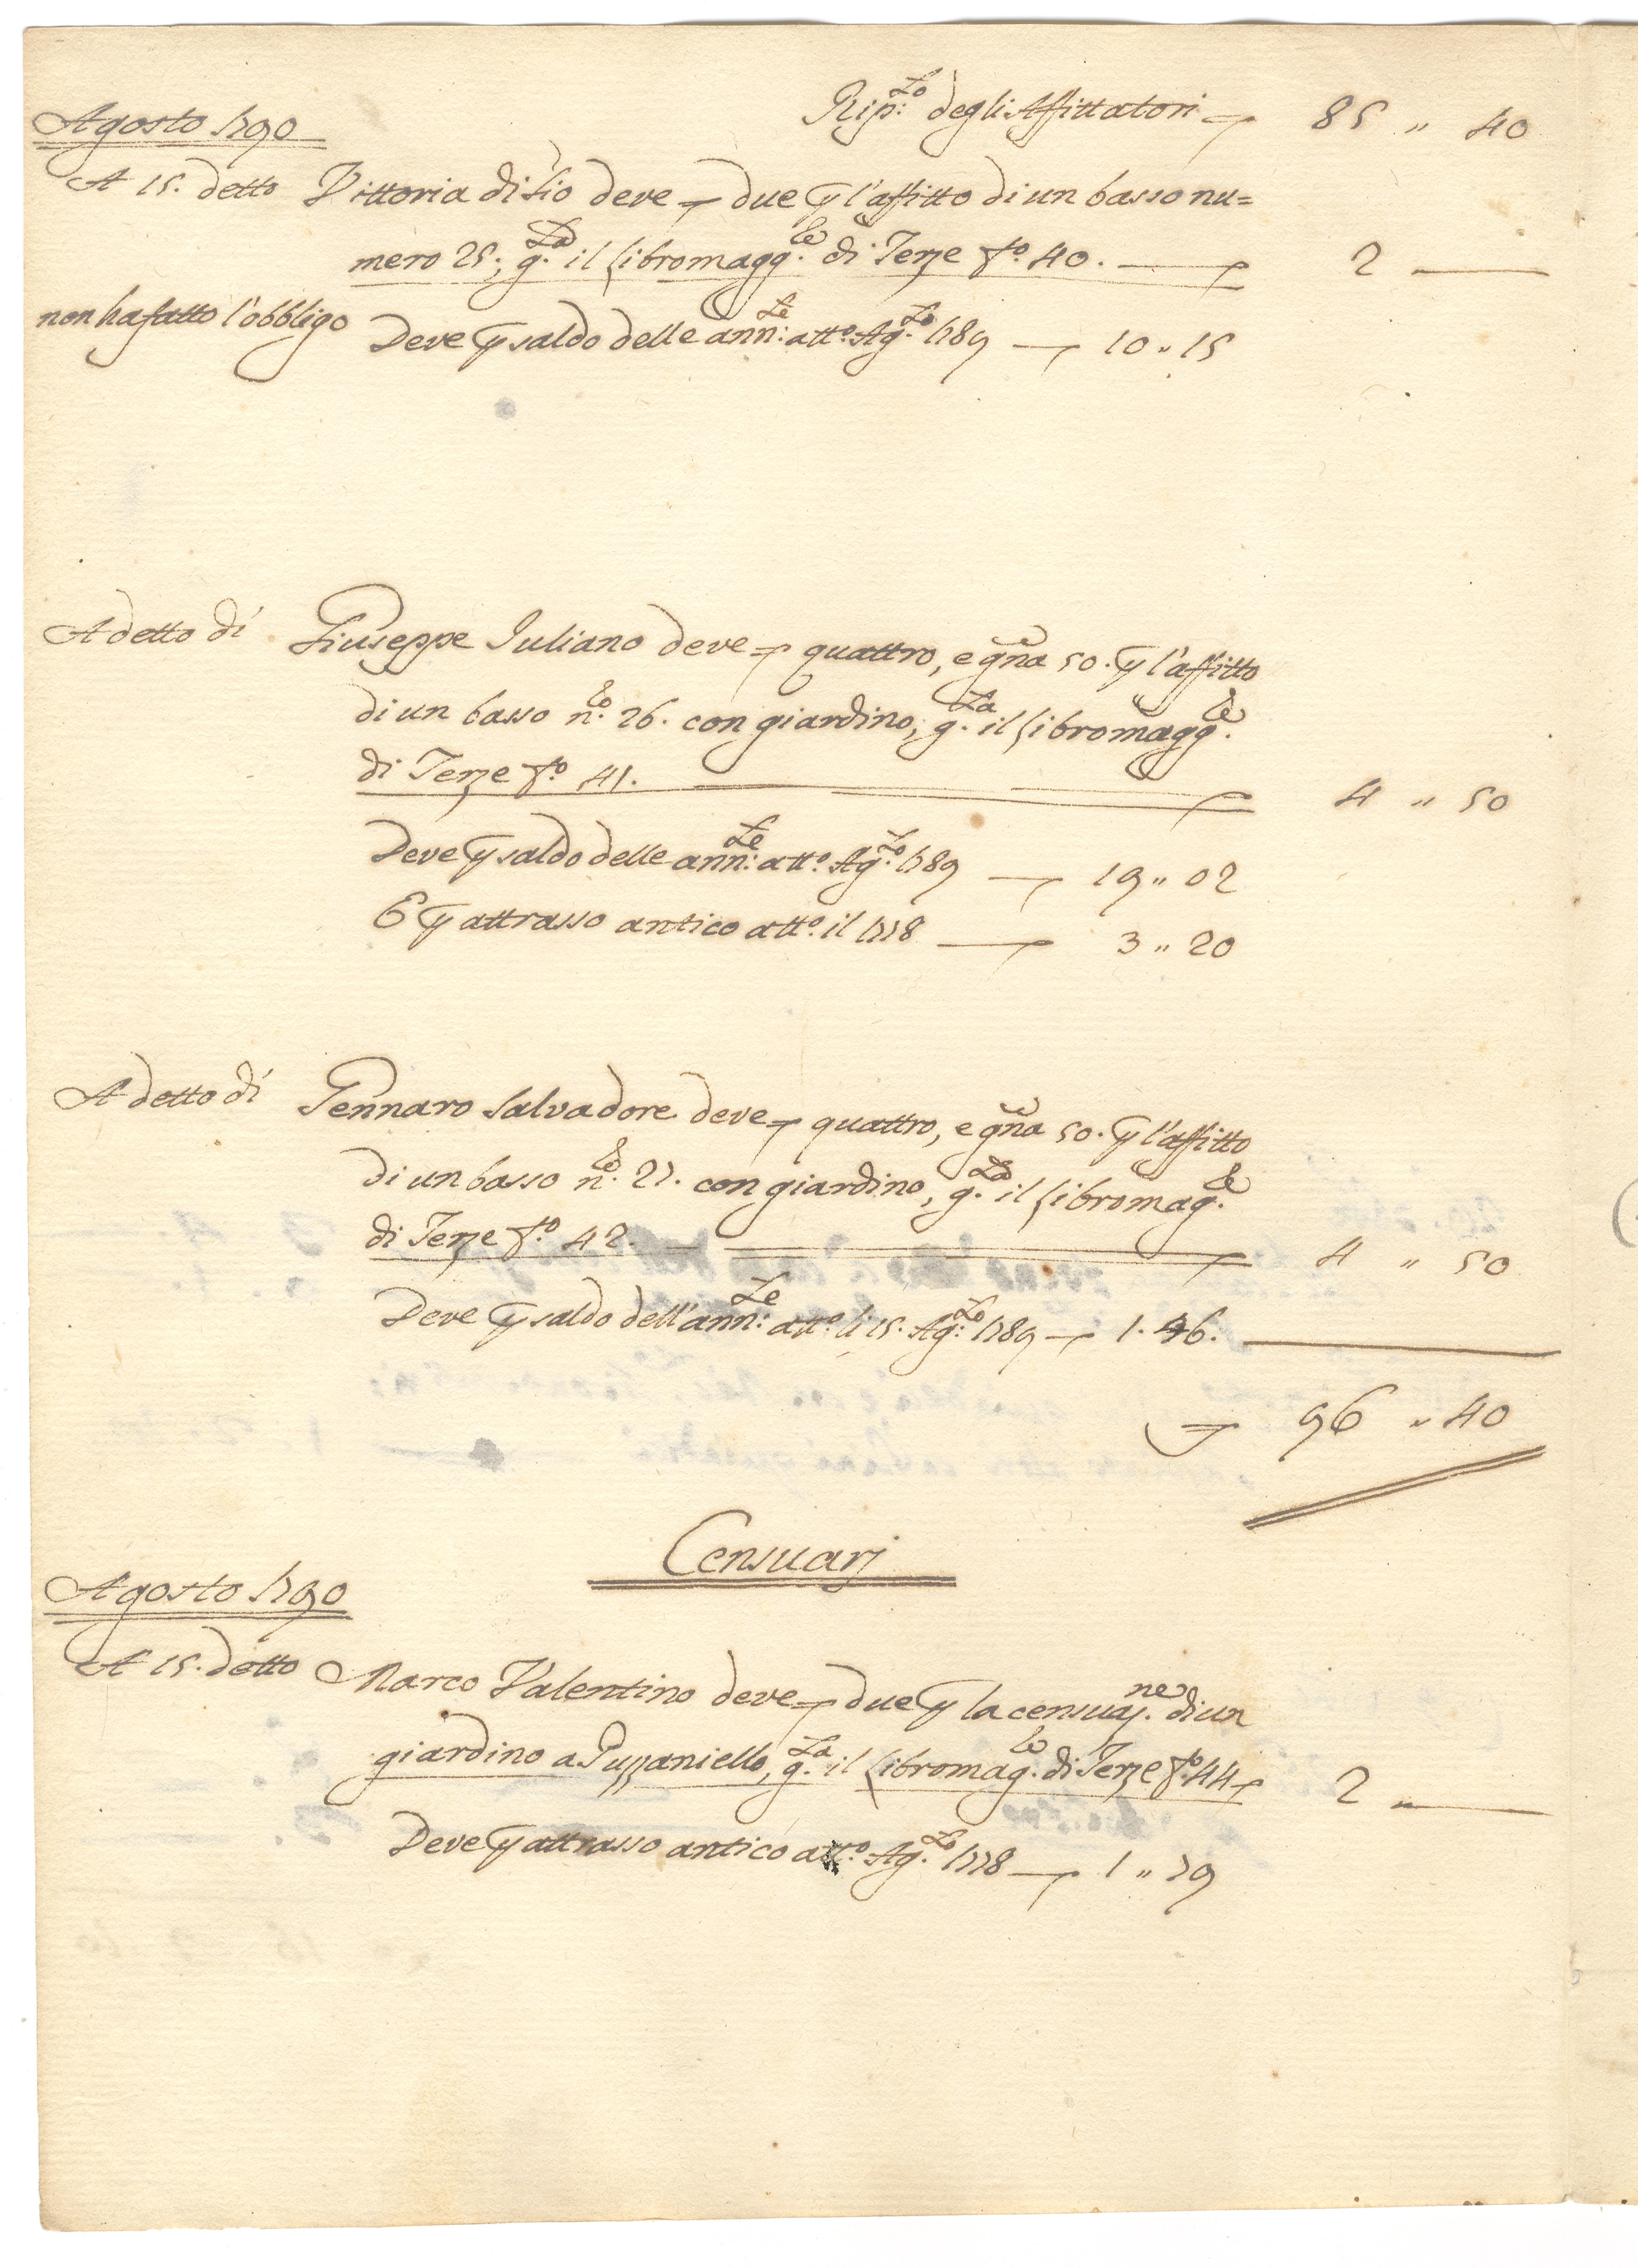 Rip:to degli Affittatori 85 " 40
Agosto 1790
A 15. detto Vittoria di Lio deve due p l'affitto di un basso nu=
mero 25., g.ta il libro magg.le di Terze fo. 40. 2
non ha fatto l'obbligo Deve p saldo delle ann:te atto. Ag.to 1789 10 " 15
A detto dì Giuseppe Iuliano deve quattro, e gna 50. p l'affitto
di un basso n.ro 26. con giardino, g.ta il libro magg.le
di Terze fo. 41. 4 " 50
Deve p saldo delle ann:te atto. Ag.to 1789 19 " 02
E p attrasso antico atto. il 1778 3 " 20
A detto dì Gennaro Salvadore deve quattro, e gna 50. p l'affitto
di un basso n.ro 27. con giardino, g.ta il libro mag.le
di Terze fo. 42. 4 " 50
Deve p saldo dell'ann:te atto. li 15. Ag:to 1789 1. 46.
96 " 40
Censuarj
Agosto 1790
A 15. detto Marco Valentino deve due p la censuaz.ne di un
giardino a Puzzaniello, g.ta il libro mag.le di Terze fo. 44 2 "
Deve p attrasso antico atto. Ag.to 1778 1 " 79